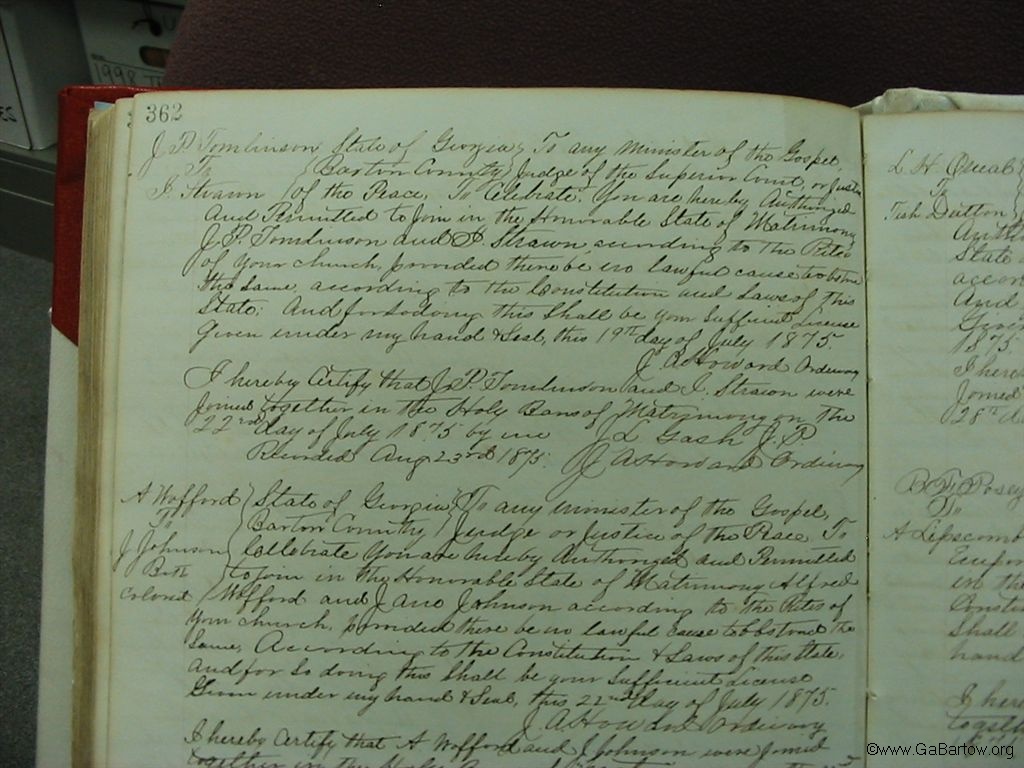 1998
362
J P Tomlinson
To
I. Strawn
State of Georgia
Bartow County
To any Minister of the Gospel,
Judge of the Superior Court, or Justice
of the Peace, To Celebrate: You are hereby Authorized
And Permitted to Join in the Honorable State of Matrimony
J. P. Tomlinson and I. Strawn according to the Rites
of Your church, provided there be no lawful cause to obstruct
the Same, according to the Constitution and Laws of this
State: And for so doing this Shall be your Sufficient License
Given under my hand & Seal, this 19th day of July 1875
J A Howard Ordinary
I hereby Certify that J. P. Tomlinson and I. Strawn were
Joined together in the Holy Bans of Matrimony on the
22nd day of July 1875 by me J L Gash J.P
Recorded Aug 23rd 1875. J A Howard Ordinary
A Wofford
To
J Johnson
Both
Colored
State of Georgia
Bartow Country
To any minister of the Gospel,
Judge or Justice of the Peace, To
Cellebrate You are hereby Authorized and Permitted
to join in the Honorable State of Matrimony Alfred
Wofford and Jane Johnson according to the Rites of
Your church, provided there be no lawful cause to obstruct the
Same, According to the Constitution & Laws of this State.
And for So doing this Shall be your Sufficient License
Given under my hand & Seal, this 22nd day of July 1875.
J. A. Howard Ordinary
I hereby Certify that A Wofford and J Johnson were Joined
together in the Holy
L. H.
To
Tish Dutton
State
accor
And
Given
1875.
I here
Joined
28th
B. F. Posey
To
A Lipscomb
in the
Const
Shall
hand
I here
togeth
©www.GaBartow.org